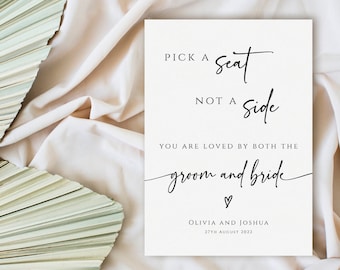 PICK A seat
NOT A side
YOU ARE LOVED BY BOTH THE
groom and bride
OLIVIA AND JOSHUA
27TH AUGUST 2022